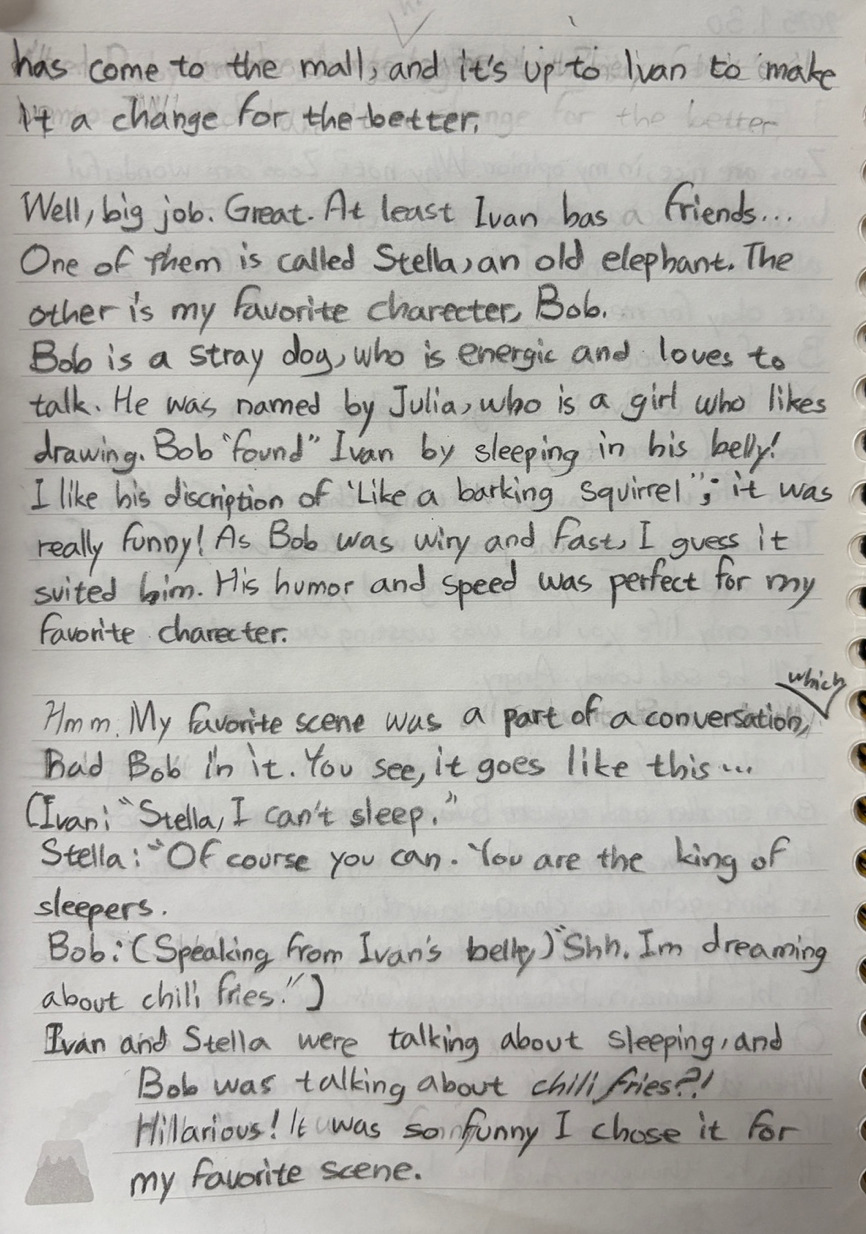 has come to the mall, and it's up to Ivan to make
it a change for the better.
Well, big job. Great. At least Ivan has a friends...
One of them is called Stella, an old elephant. The
other is my favorite charecter, Bob.
Bob is a stray dog, who is energic and loves to
talk. He was named by Julia, who is a girl who likes
drawing. Bob "found" Ivan by sleeping in his belly!
I like his discription of 'Like a barking squirrel"; it was
really funny! As Bob was wiry and fast, I guess it
suited him. His humor and speed was perfect for my
favorite charecter.
which
Hmm. My favorite scene was a part of a conversation,
had Bob in it. You see, it goes like this...
(Ivan: "Stella, I can't sleep."
Stella: "Of course you can. You are the king of
sleepers.
Bob: (Speaking from Ivan's belly) "Shh. Im dreaming
about chili fries.")
Ivan and Stella were talking about sleeping, and
Bob was talking about chili fries?!
Hillarious! It was so funny I chose it for
my favorite scene.